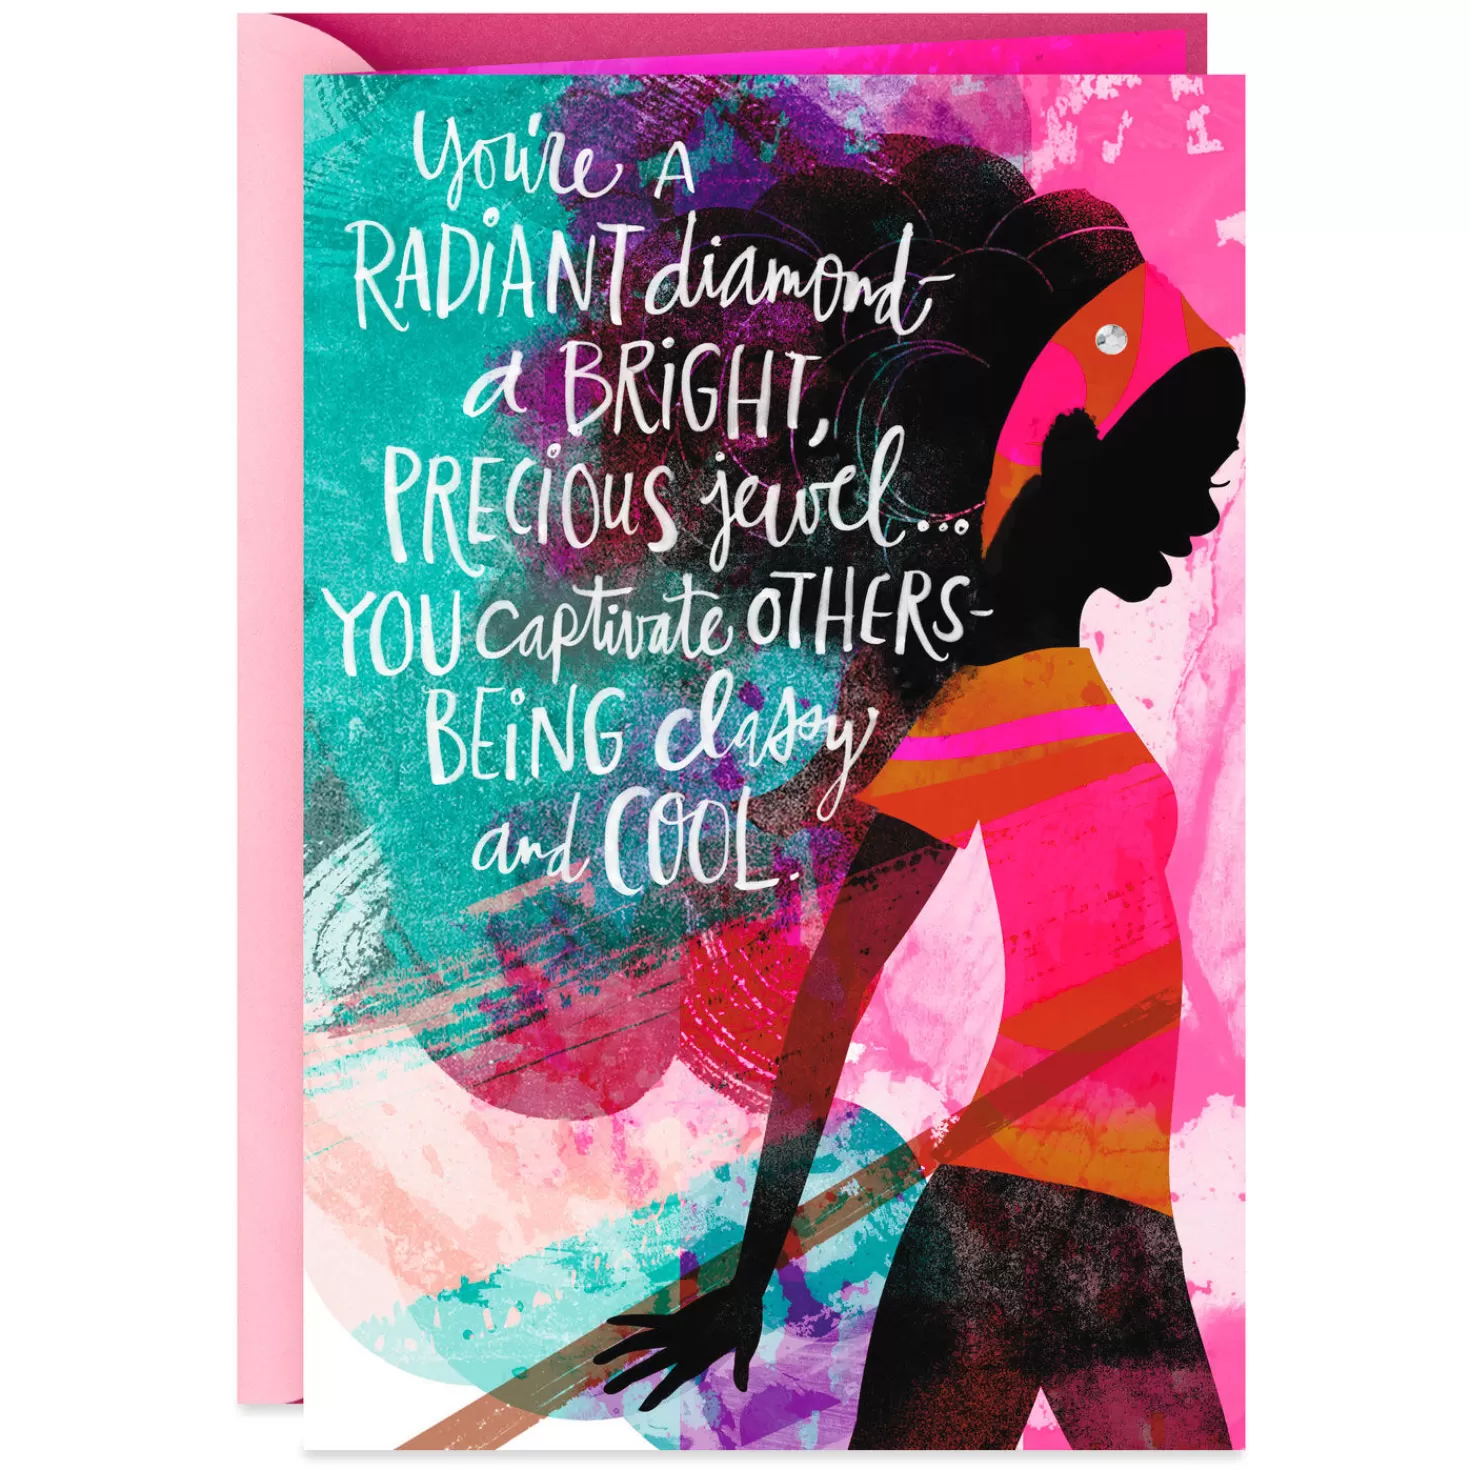 You're A
RADiANT diamond-
a BRiGHT,
PRECiOUS jewel...
YOU captivate OTHERS-
BEiNG classy
and COOL.